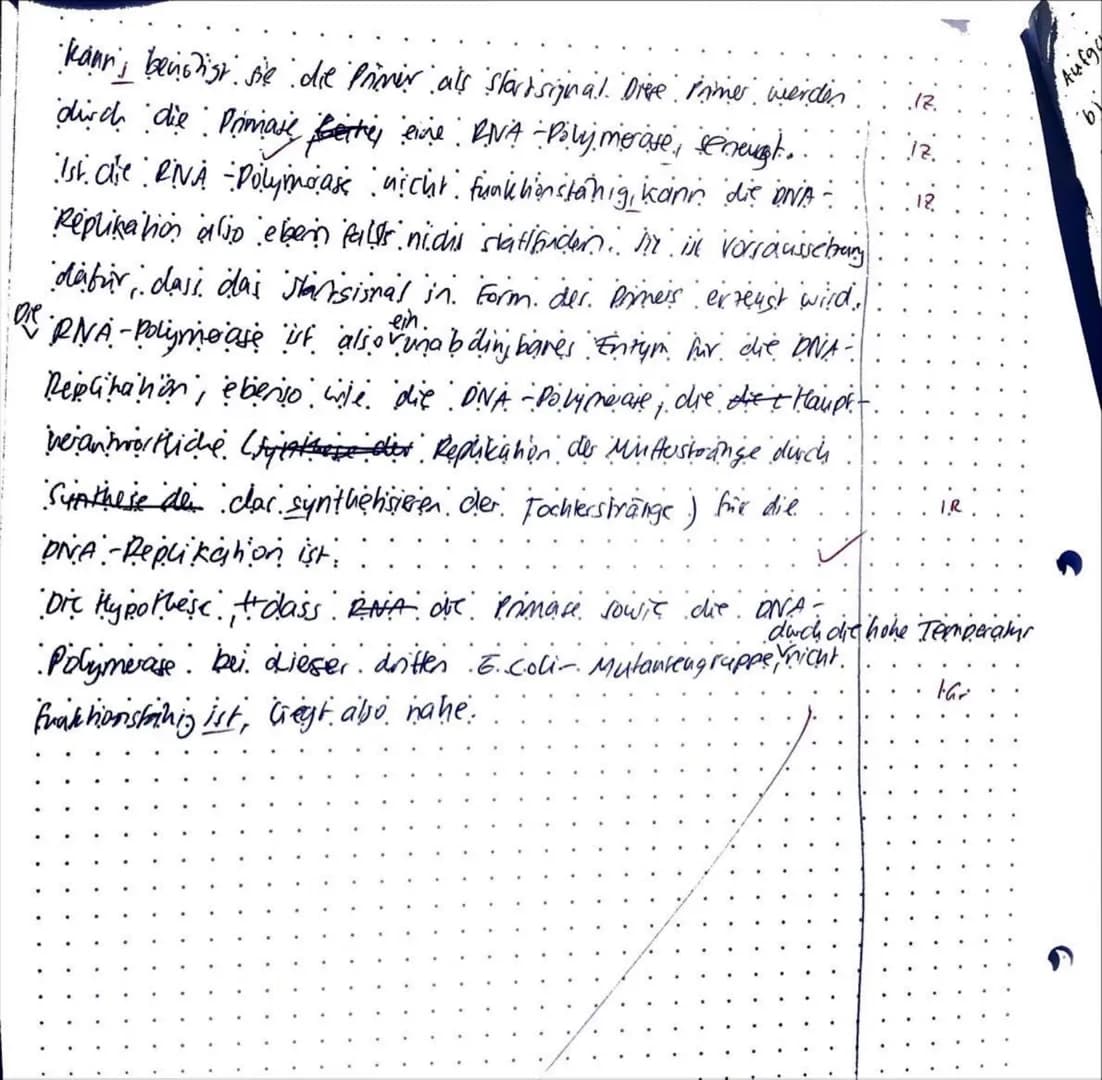 kann, benötigt sie die Primer als Startsignal. Diese Primer werden 1Z.
durch die Primase, eine RNA-Polymerase, erzeugt. 1Z.
Ist die RNA-Polymerase nicht funktionsfähig, kann die DNA- 1Z.
Replikation also ebenfalls nicht stattfinden. Ihr ist Vorraussetzung
dafür, dass das Startsignal in Form des Primers erzeugt wird.
Die RNA-Polymerase ist also ein unabdingbares Enzym für die DNA-
Replikation, ebenso wie die DNA-Polymerase, die Haupt-
verantwortliche (Replikation der Mutterstränge durch
Synthese der das synthetisieren der Tochterstränge) für die 1R
DNA-Replikation ist.
Die Hypothese, dass RNA die Primase sowie die DNA-
Polymerase bei dieser dritten E.coli-Mutantengruppe, durch die hohe Temperatur nicht
funktionsfähig ist, liegt also nahe. 1Gr
Aufga
b)